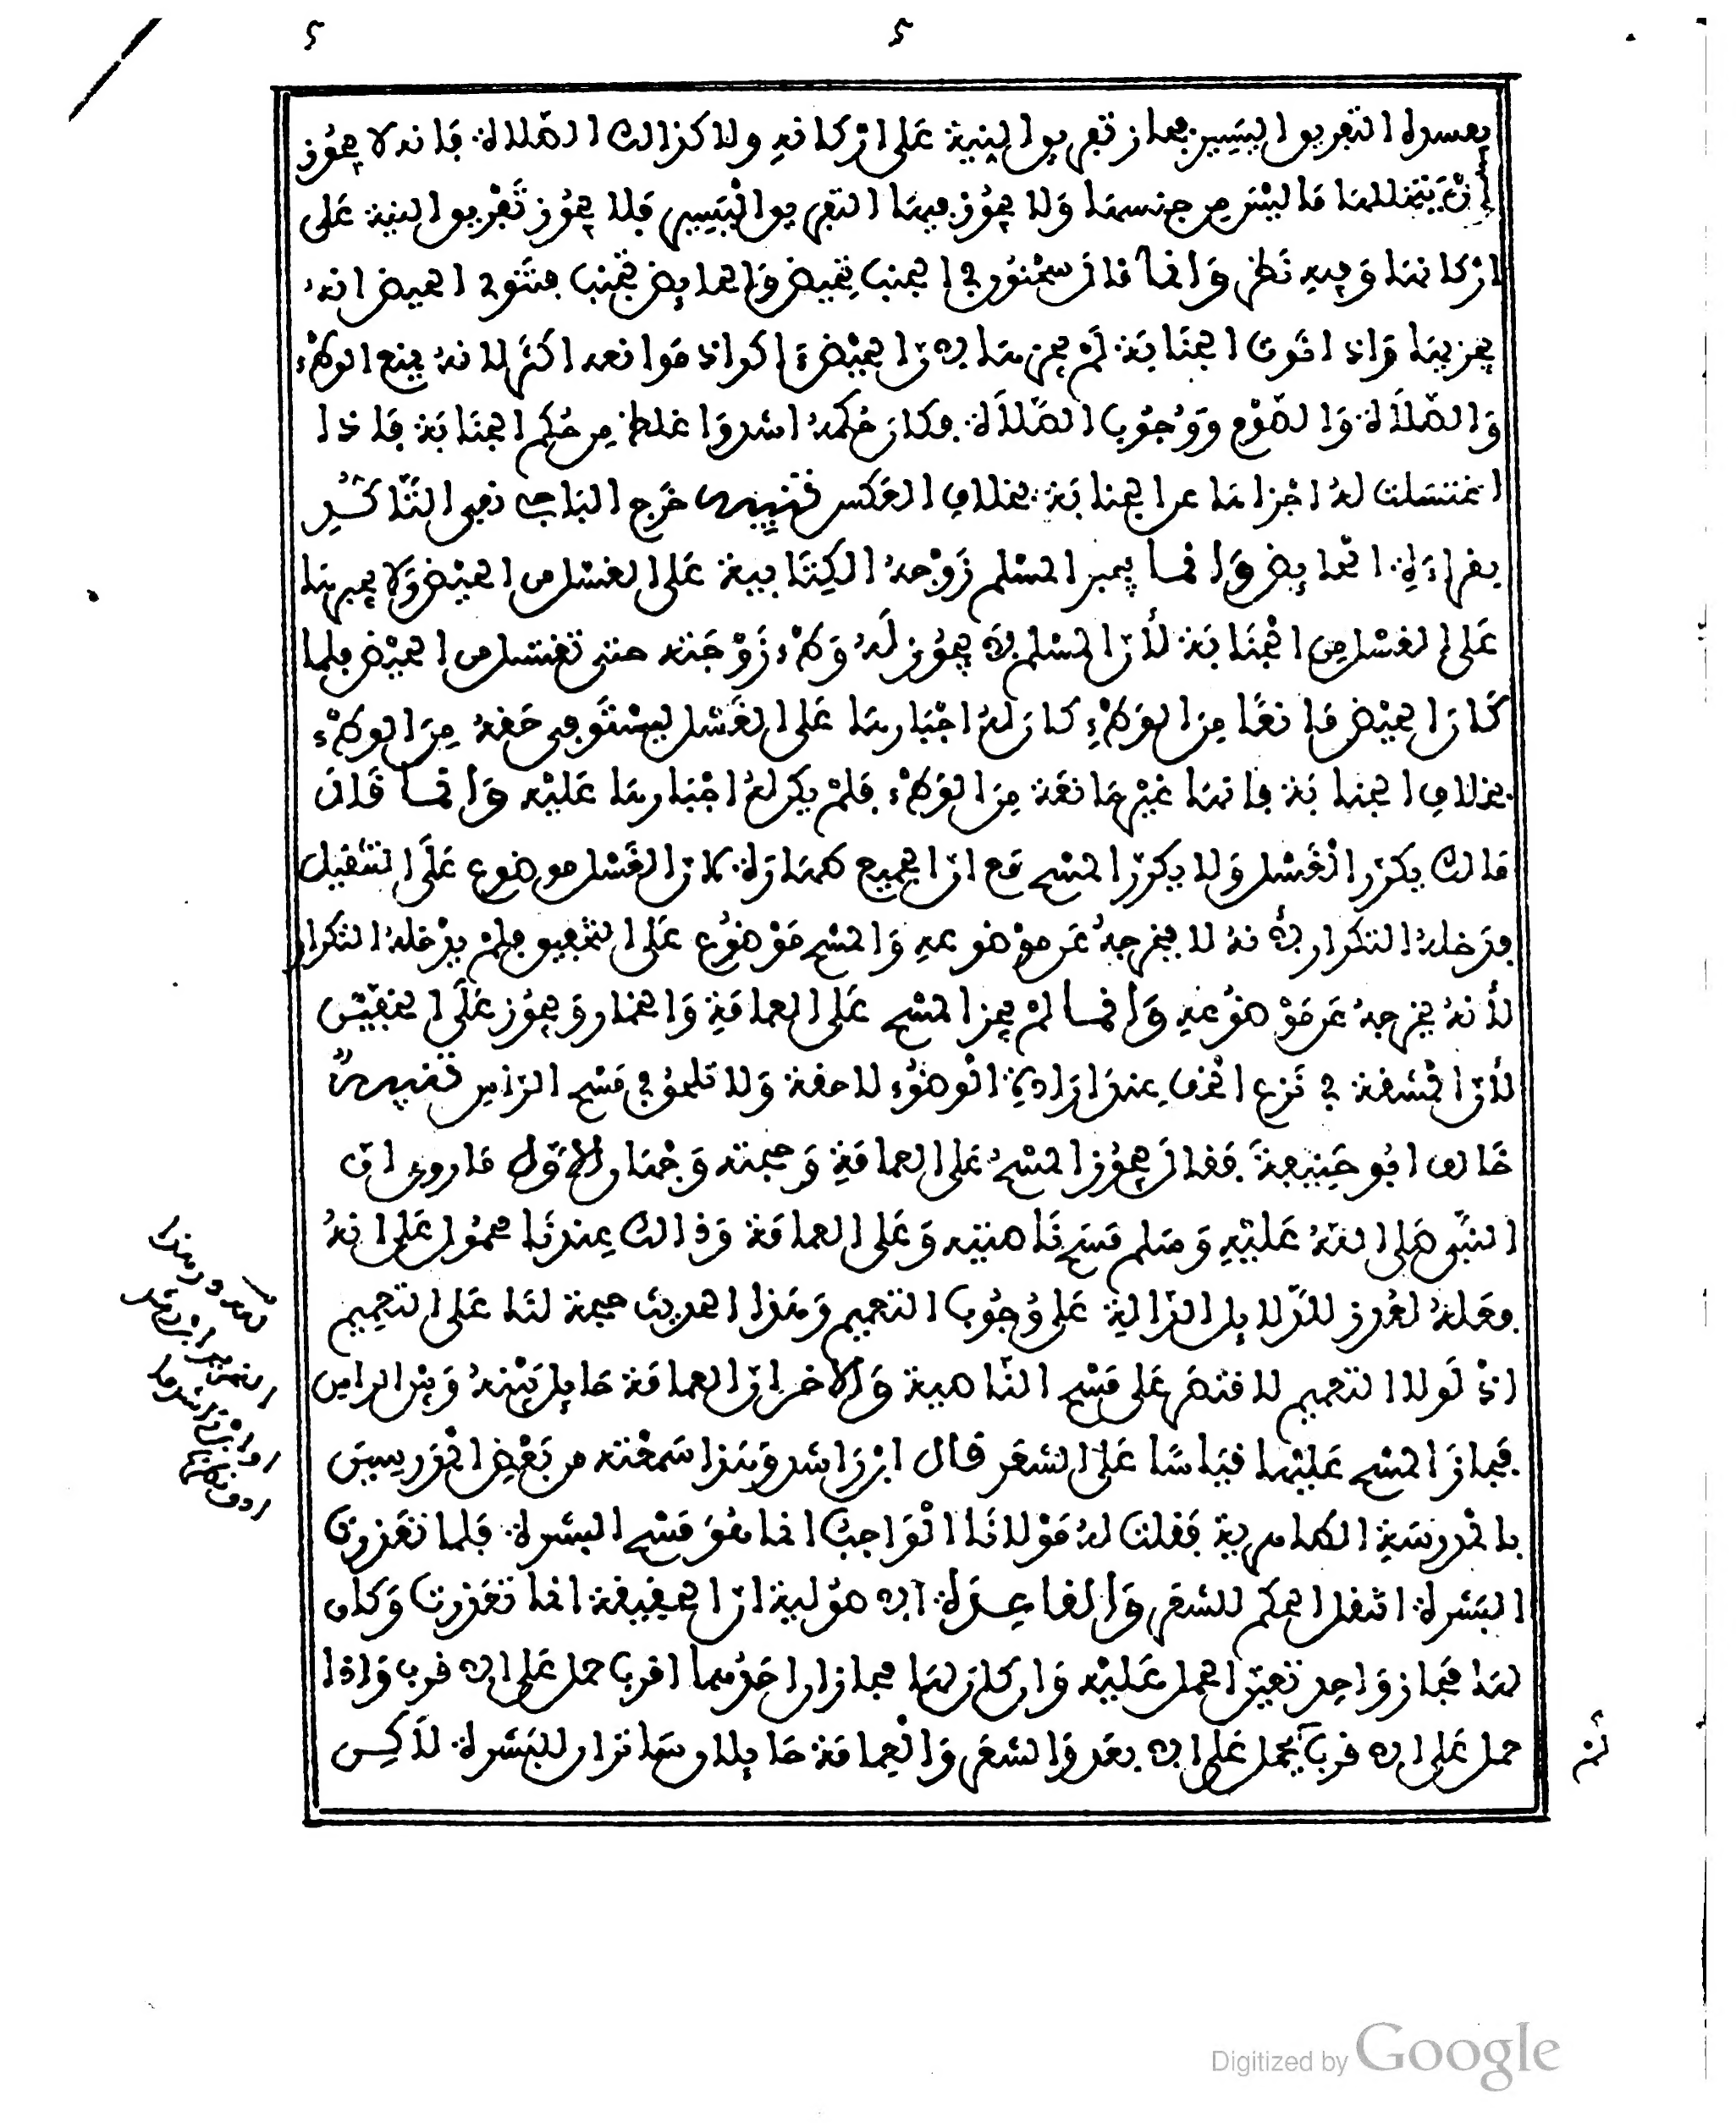 يفسده التفريق اليسير فجاز تفريق النية على اركانه ولا كذالك الصلاة فانه لا يجوز
أن يتخللها ما ليس من جنسها ولا يجوز فيها التفريق اليسير فلا يجوز تفريق النية على
اركانها وفيه نظر وانما قال سحنون في الجنب تحيض والحايض تجنب فتنوي الحيض انه
يجزيها واذا نوت الجنابة لم يجزها لان الحيض اكد اذ موانعه اكثر لانه يمنع الوطء
والصلاة والصوم ووجوب الصلاة فكان حكمه اشد واغلظ من حكم الجنابة فاذا
اغتسلت له اجزاها عن الجنابة بخلاف العكس تنبيه خرج الباجي نفي التناكر
بقراءة الحايض وانما يجبر المسلم زوجه الكتابية على الغسل من الحيض ولا يجبرها
على الغسل من الجنابة لأن المسلم لا يجوز له وطء زوجته حتى تغتسل من الحيض فلما
كان الحيض مانعا من الوطء كان له اجبارها على الغسل ليستوفي حقه من الوطء
بخلاف الجنابة فانها غير مانعة من الوطء فلم يكن له اجبارها عليه وانما قال
مالك يكرر الغسل ولا يكرر المسح مع ان الجميع طهارة لان الغسل موضوع على التثقيل
فدخله التكرار لأنه لا يخرجه عن موضوعه والمسح موضوع على التخفيف فلم يدخله التكرار
لأنه يخرجه عن موضوعه وانما لم يجز المسح على العمامة والخمار ويجوز على الخفين
لأن المشقة في نزع الخف عند ارادة الوضوء لاحقة ولا تلحق في مسح الراس تنبيه
خالف ابو حنيفة فقال يجوز المسح على العمامة وحجته وجهان الاول ما روي ان
النبي صلى الله عليه وسلم مسح ناصيته وعلى العمامة وذالك عندنا محمول على انه
فعله لعذر للدلايل الدالة على وجوب التعميم وهذا الحديث حجة لنا على التعميم
اذ لولا التعميم لاقتصر على مسح الناصية والاخر ان العمامة حايل بينه وبين الراس
فجاز المسح عليها قياسا على الشعر قال ابن راشد وهذا سمعته من بعض المدرسين
بالمدرسة الظاهرية فقلت له مولانا الواجب انما هو مسح البشرة فلما تعذرت
البشرة انتقل الحكم للشعر والقاعدة الاصولية ان الحقيقة اذا تعذرت وكان
لها مجاز واحد تعين الحمل عليه وان كان لها مجازان احدهما اقرب حمل على الاقرب واذا
حمل على الاقرب لم يحمل على الابعد والشعر والعمامة حايلان ساتران للبشرة لاكن